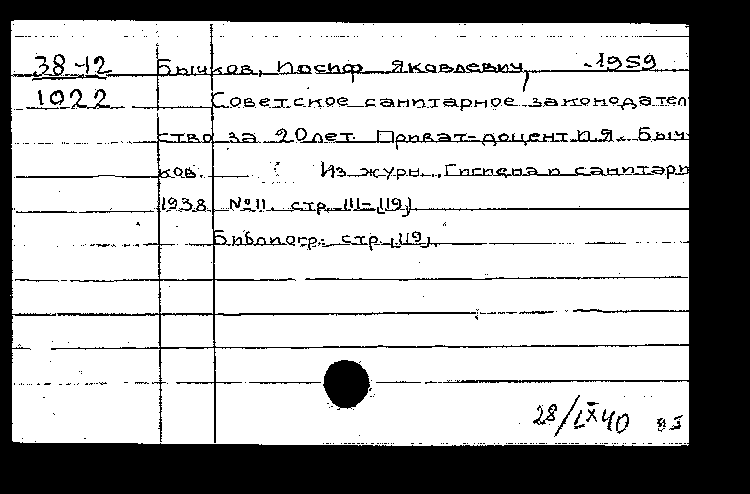 38-12 Бычков, Иосиф Яковлевич, -1959
1022 Советское санитарное законодатель
ство за 20 лет. Приват-доцент И.Я. Быч
ков. Из журн. „Гигиена и санитари
1938 № 11. стр. 111-[119]
Библиогр: стр. [119].
28/IX 40